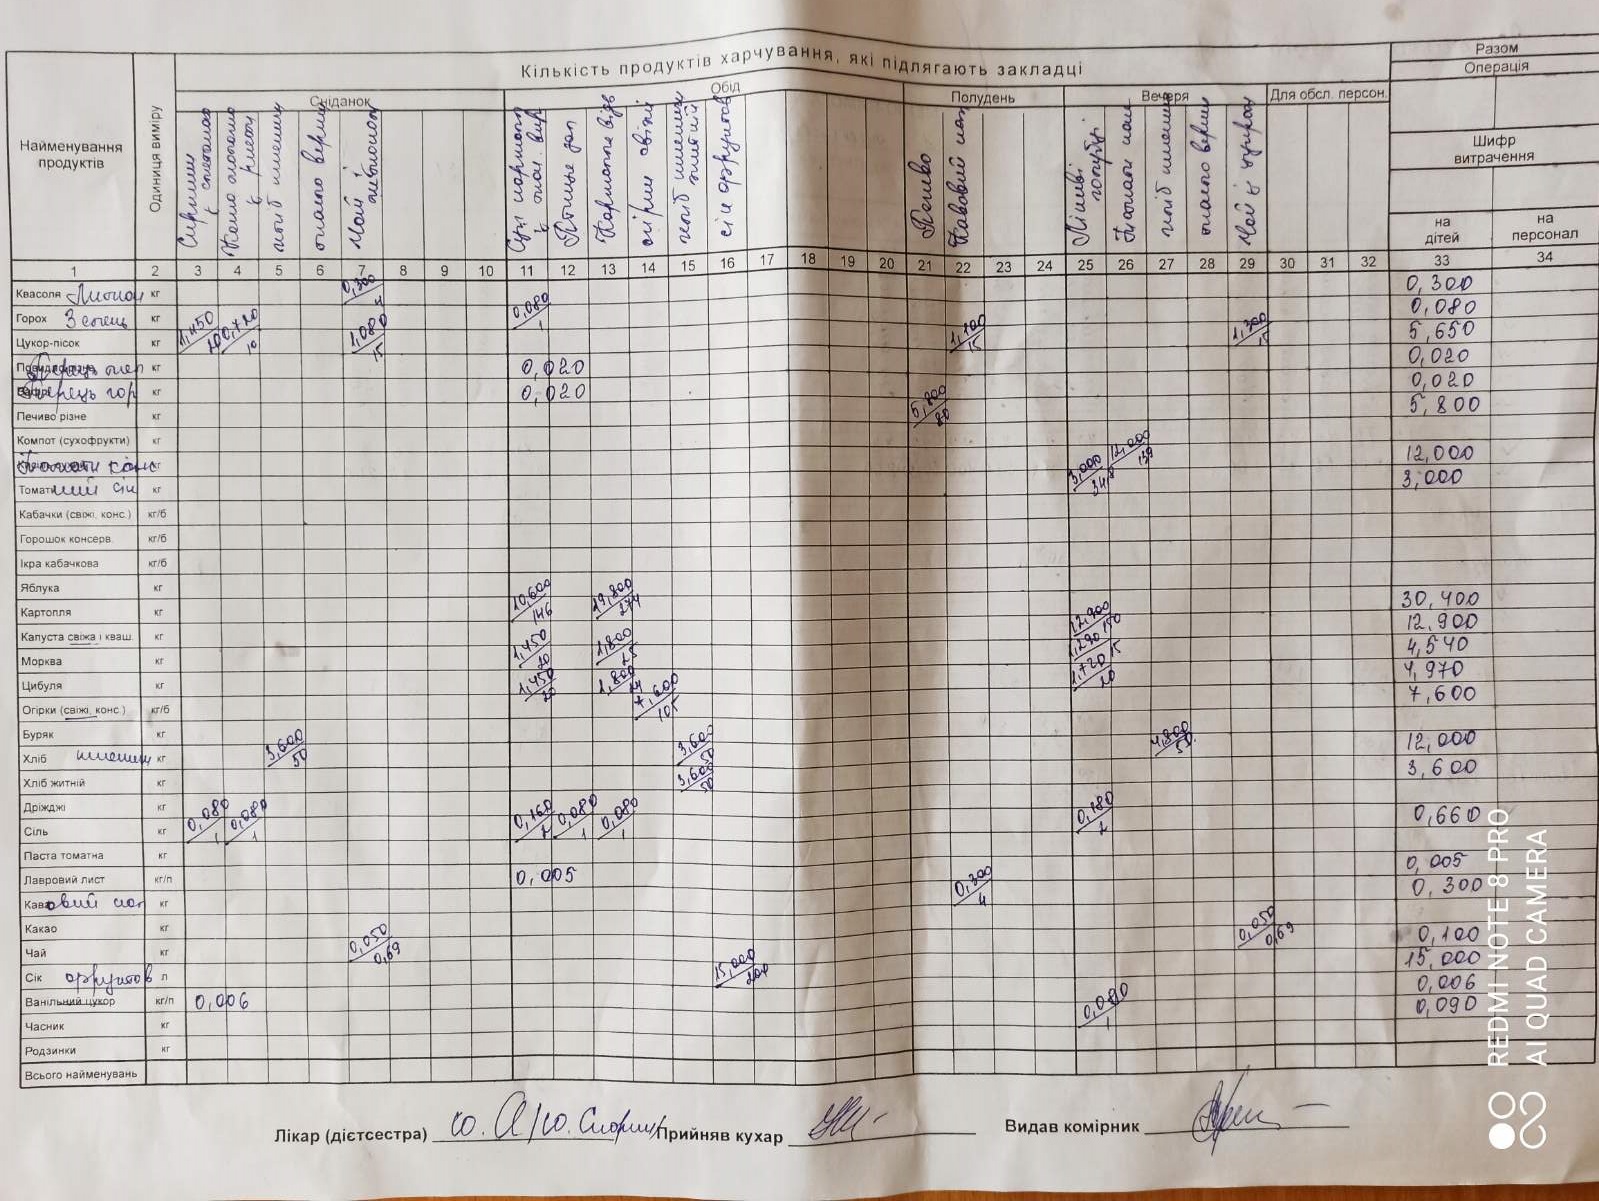 Кількість продуктів харчування, які підлягають закладці
Разом
Операція
Шифр витрачення
на дітей
на персонал
Найменування продуктів
Одиниця виміру
Сніданок
Обід
Полудень
Вечеря
Для обсл. персон.
хліб пшеничн
масло вершк
Чай і
Птиця
Картопля відв
огірки свіжі
хліб пшеничн житній
сік фруктов
Печиво
Кавовий нап
Лініві голубці
Томати
хліб пшеничн
масло вершк
Чай з цукром
1 2 3 4 5 6 7 8 9 10 11 12 13 14 15 16 17 18 19 20 21 22 23 24 25 26 27 28 29 30 31 32 33 34
Квасоля Лимон кг 0,300/4 0,300
Горох Зелень кг 0,080/1 0,080
Цукор-пісок кг 1,450/20 0,720/10 1,080/15 1,100/15 1,300/15 5,650
Перець кг 0,020 0,020
Перець гор кг 0,020 0,020
Печиво різне кг 5,800/80 5,800
Компот (сухофрукти) кг
Томати конс кг 12,000/139 12,000
Томатний сік кг 3,000/34,8 3,000
Кабачки (свіжі, конс.) кг/б
Горошок консерв. кг/б
Ікра кабачкова кг/б
Яблука кг
Картопля кг 10,600/146 19,800/274 30,400
Капуста свіжа і кваш. кг 12,900/150 12,900
Морква кг 1,450/20 1,800/25 1,290/15 4,540
Цибуля кг 1,450/20 1,800/24 1,720/20 4,970
Огірки (свіжі, конс.) кг/б 7,600/105 7,600
Буряк кг
Хліб пшенич кг 3,600/50 3,600/50 4,800/50 12,000
Хліб житній кг 3,600/50 3,600
Дріжджі кг
Сіль кг 0,080/1 0,080/1 0,160/2 0,080/1 0,080/1 0,180/2 0,660
Паста томатна кг
Лавровий лист кг/п 0,005 0,005
Кавовий нап кг 0,300/4 0,300
Какао кг
Чай кг 0,050/0,69 0,050/0,69 0,100
Сік фруктов л 15,000/200 15,000
Ванільний цукор кг/п 0,006 0,006
Часник кг 0,090/1 0,090
Родзинки кг
Всього найменувань
Лікар (дієтсестра)
Прийняв кухар
Видав комірник
REDMI NOTE 8 PRO
AI QUAD CAMERA